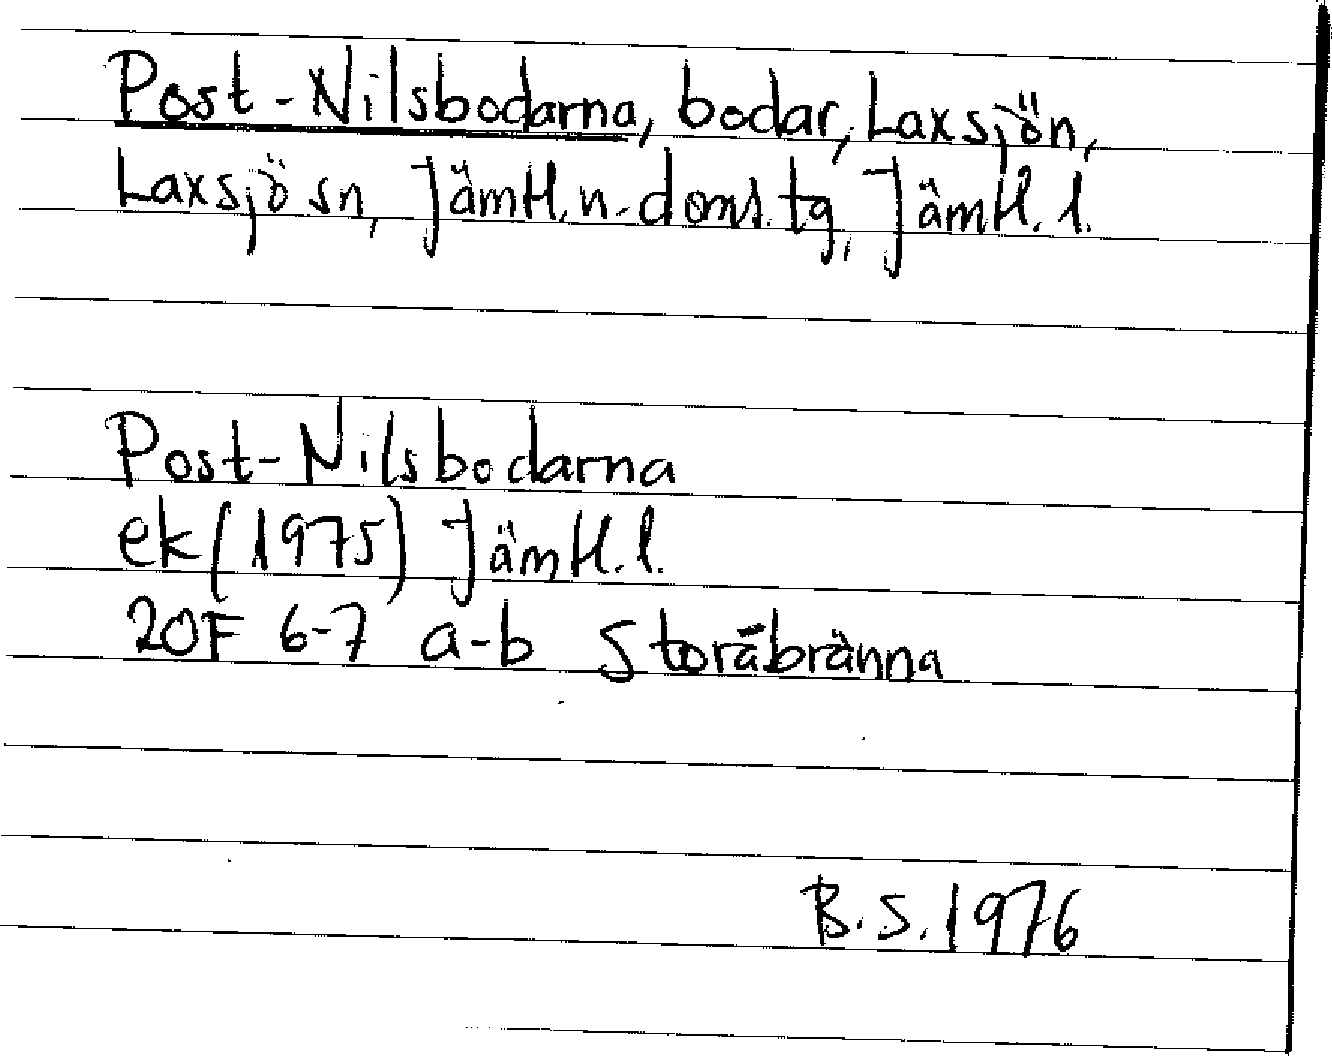 Post-Nilsbodarna, bodar, Laxsjön,
Laxsjö sn, Jämtl. n. doms. tg, Jämtl. l.
Post-Nilsbodarna
ek (1975) Jämtl. l.
20F 6-7 a-b Storåbränna
B.S. 1976